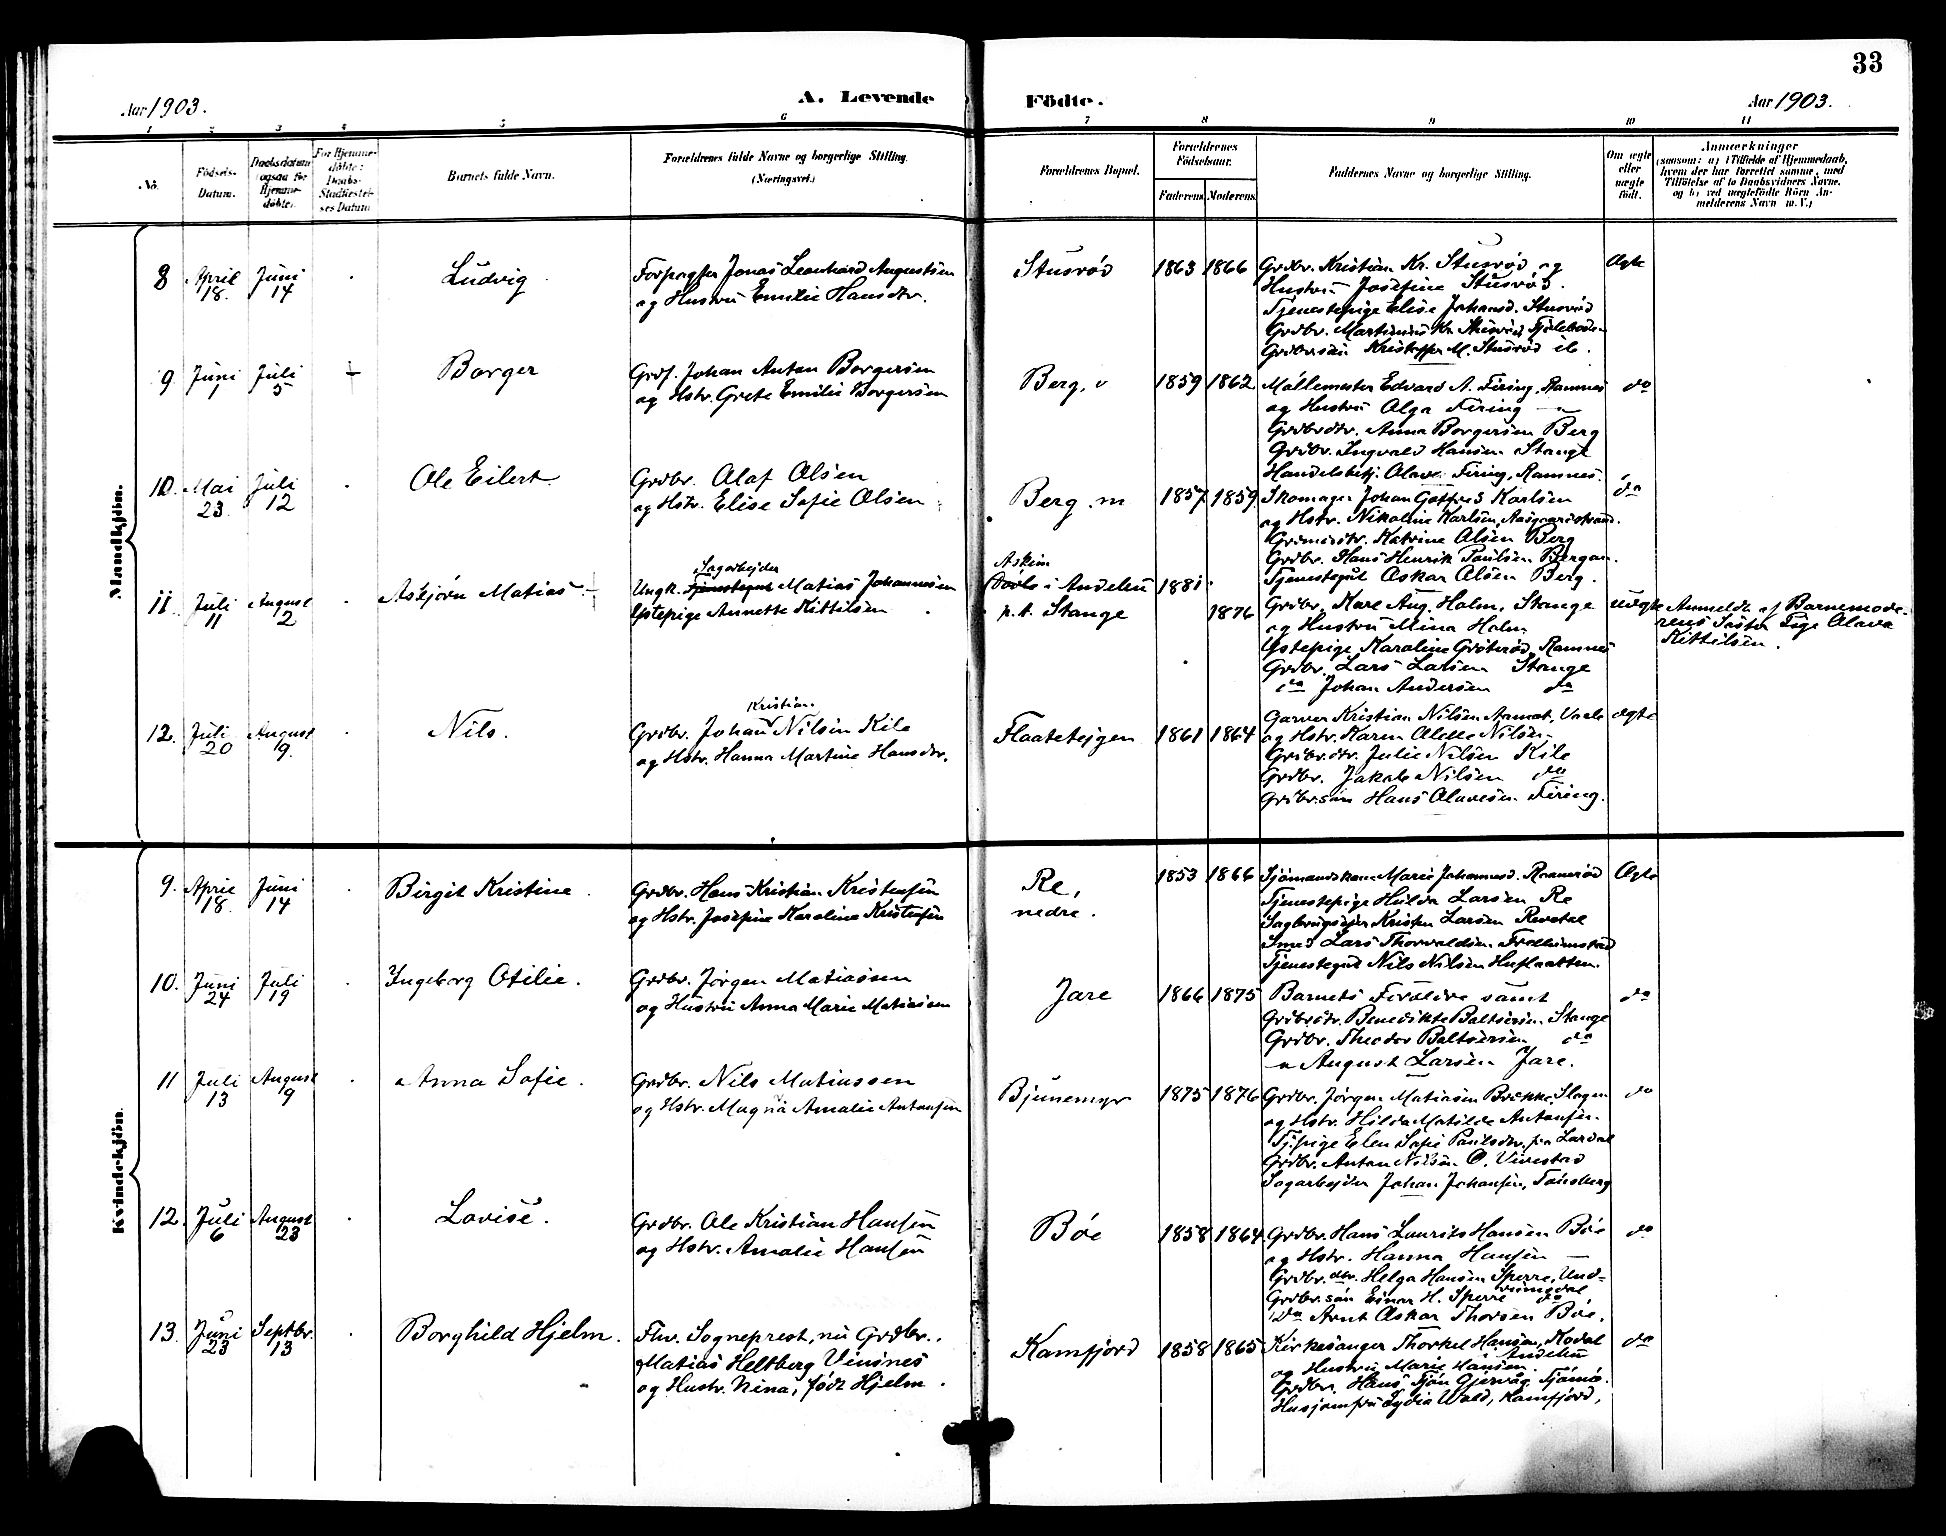 33
Aar 1903.
A. Levende Födte.
Aar 1903.
1 2 3 4 5 6 7 8 9 10 11
No.
Födsels-
Datum.
Daabsdatum
(ogsaa for
Hjemme-
döbte).
For Hjemme-
döbte:
Daabs-
Stadfæstel-
ses Datum.
Barnets fulde Navn.
Forældrenes fulde Navne og borgerlige Stilling.
(Næringsvei.)
Forældrenes Bopæl.
Forældrenes
Födselsaar.
Faderens Moderens
Faddernes Navne og borgerlige Stilling.
Om ægte
eller
uægte
födt.
Anmærkninger
(saasom: a) i Tilfælde af Hjemmedaab,
hvem der har forrettet samme, med
Tilföielse af to Daabsvidners Navne,
og b) ved uægtefödte Börn An-
melderens Navn m. V.)
Mandkjön.
8
April
18.
Juni
14
Ludvig
Forpagter Jonas Leonhard Augustsen
og Hustru Emilie Hansdtr.
Stusrød
1863 1866
Grdbr. Kristian Kr. Stusrød og
Hustru Josefine Stusrød.
Tjenestepige Elise Johansd. Stusrød
Grdbr. Martinius Kr. Stusrød,
Grdbrsøn Kristoffer M. Stusrød ib.
Ægte
9
Juni
7
Juli
5
Borger
Grdf. Johan Anton Borgersen
og Hstr. Grete Emilie Borgersen
Berg, v
1859 1862
Møllemester Edvard A. Firing, Ramnes
og Hustru Olga Firing
Grdbrdtr. Anna Borgersen Berg
Grdbr. Ingvald Hansen Stange
Handelsbetj. Olave Firing, Ramnes.
do
10.
Mai
23
Juli
12
Ole Eilert
Grdbr. Olaf Olsen
og Hstr. Elise Sofie Olsen
Berg. m
1857 1859
Skomager Johan Gotfred Karlsen
og Hstr. Nikoline Karlsen, Aasgaardstrand.
Katrine Olsen Berg
Grdbr. Hans Henrik Paulsen Bergan
Tjenestegut Oskar Olsen Berg.
do
11
Juli
11
August
2
Asbjørn Matias
Sagarbejder
Ungk. Tjenestegut Matias Johannesen
Ystepige Annette Kittilsen
Askim
i Andebu
p.t. Stange
1881
1876
Grdbr. Kare Aug. Holm, Stange
og Hustru Mina Holm
Ystepige Karoline Grøterød, Ramnes
Grdbr. Lars Larsen Stange
do Johan Andersen do
Uægte
Anmeldt af Barnemode-
rens Søster Pige Olava
Kittilsen.
12.
Juli
20
August
9.
Nils.
Kristian
Grdbr. Johan Nilsen Kile
og Hstr. Hanna Martine Hansdtr.
Flaatetejgen
1861 1864
Garver Kristian Nilsen Aamot, Vaale
og Hstr. Karen Olette Nilsen
Grdbrdtr. Julie Nilsen Kile
Grdbr. Jakob Nilsen do
Grdbr.søn Hans Olavesen Firing.
ægte
Kvindekjön.
9.
April
18.
Juni
14
Birgit Kristine.
Grdbr. Hans Kristian Kristensen
og Hstr. Josefine Karoline Kristensen
Re,
nedre.
1853 1866
Sjømandskone Marie Johannesd.
Tjenestepige Hulda Larsen Re
Sagbrugsejer Kristen Larsen Revetal
Smed Lars Thorvaldsen
Tjenestegut Nils Nilsen
Ægte
10.
Juni
24
Juli
19
Ingeborg Otilie.
Grdbr. Jørgen Matiassen
og Hustru Anna Marie Matiassen
Jare
1866 1875
Barnets Forældre samt
Grdbrdtr. Benedikte Baltsersen Stange
Grdbr. Theodor Baltsersen do
" August Larsen Jare.
do
11
Juli
13
August
9
Anna Sofie.
Grdbr. Nils Matiassen
og Hstr. Magna Amalie Antonsen
Bjunemyr
1875 1876
Grdbr. Jørgen Matiasen Bække, Slagen
og Hstr. Hilda Matilde Antonsen.
Tj.pige Elen Sofie Paulsdtr. fra Lardal
Grdbr. Anton Nilsen Ø. Vivestad
Sagarbejder Johan Johansen, Tønsberg
do
12.
Juli
6
August
23
Lovise.
Grdbr. Ole Kristian Hansen
og Hstr. Amalie Hansen
Bøe
1858 1864
Grdbr. Hans Laurits Hansen Bøe
og Hstr. Hanna Hansen
Grdbr.dtr. Helga Hansen Sperre, Und-
rumsdal
Grdbr.søn Einar H. Sperre do
do Arnt Oskar Thorsen Bøe.
do
13.
Juni
23
Septbr.
13
Borghild Hjelm.
Fhv. Sogneprest, nu Grdbr.
Matias Heltberg Vinsnes
og Hustr. Nina, født Hjelm.
Kamfjord
1858 1865
Kirkesanger Thorkel Hansen, Kodal
i Andebu
og Hustru Marie Hansen.
Grdbr. Hans Fjøn Gjervåg Tjømø.
Husjomfru Lydia Wold, Kamfjord,
do